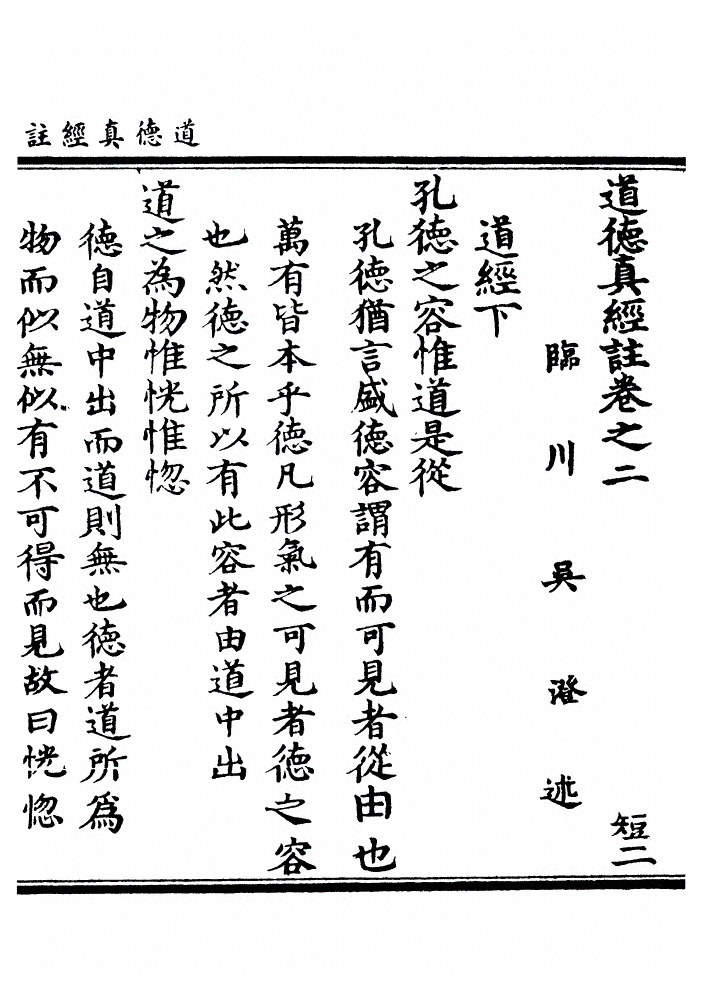 道德真經註
道德真經註卷之二 短二
臨川吳澄述
道經下
孔德之容惟道是從
孔德猶言盛德容謂有而可見者從由也
萬有皆本乎德凡形氣之可見者德之容
也然德之所以有此容者由道中出
道之為物惟恍惟惚
德自道中出而道則無也德者道所為
物而似無似有不可得而見故曰恍惚